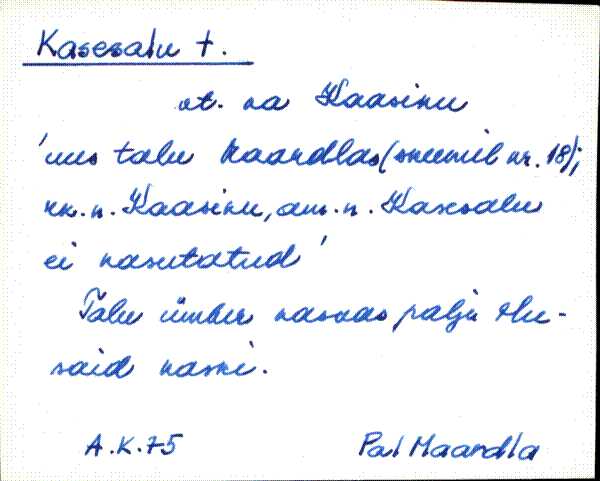 Kasesalu t.
vt. ka Kaasiku
'uus talu Kaardlas (skeemil nr. 18);
rk. n. Kaasiku, am. n. Kasesalu
ei kasutatud'
Talu ümber kasvas palju ilu-
said kaski.
A.K. 75 Pal Kaardla